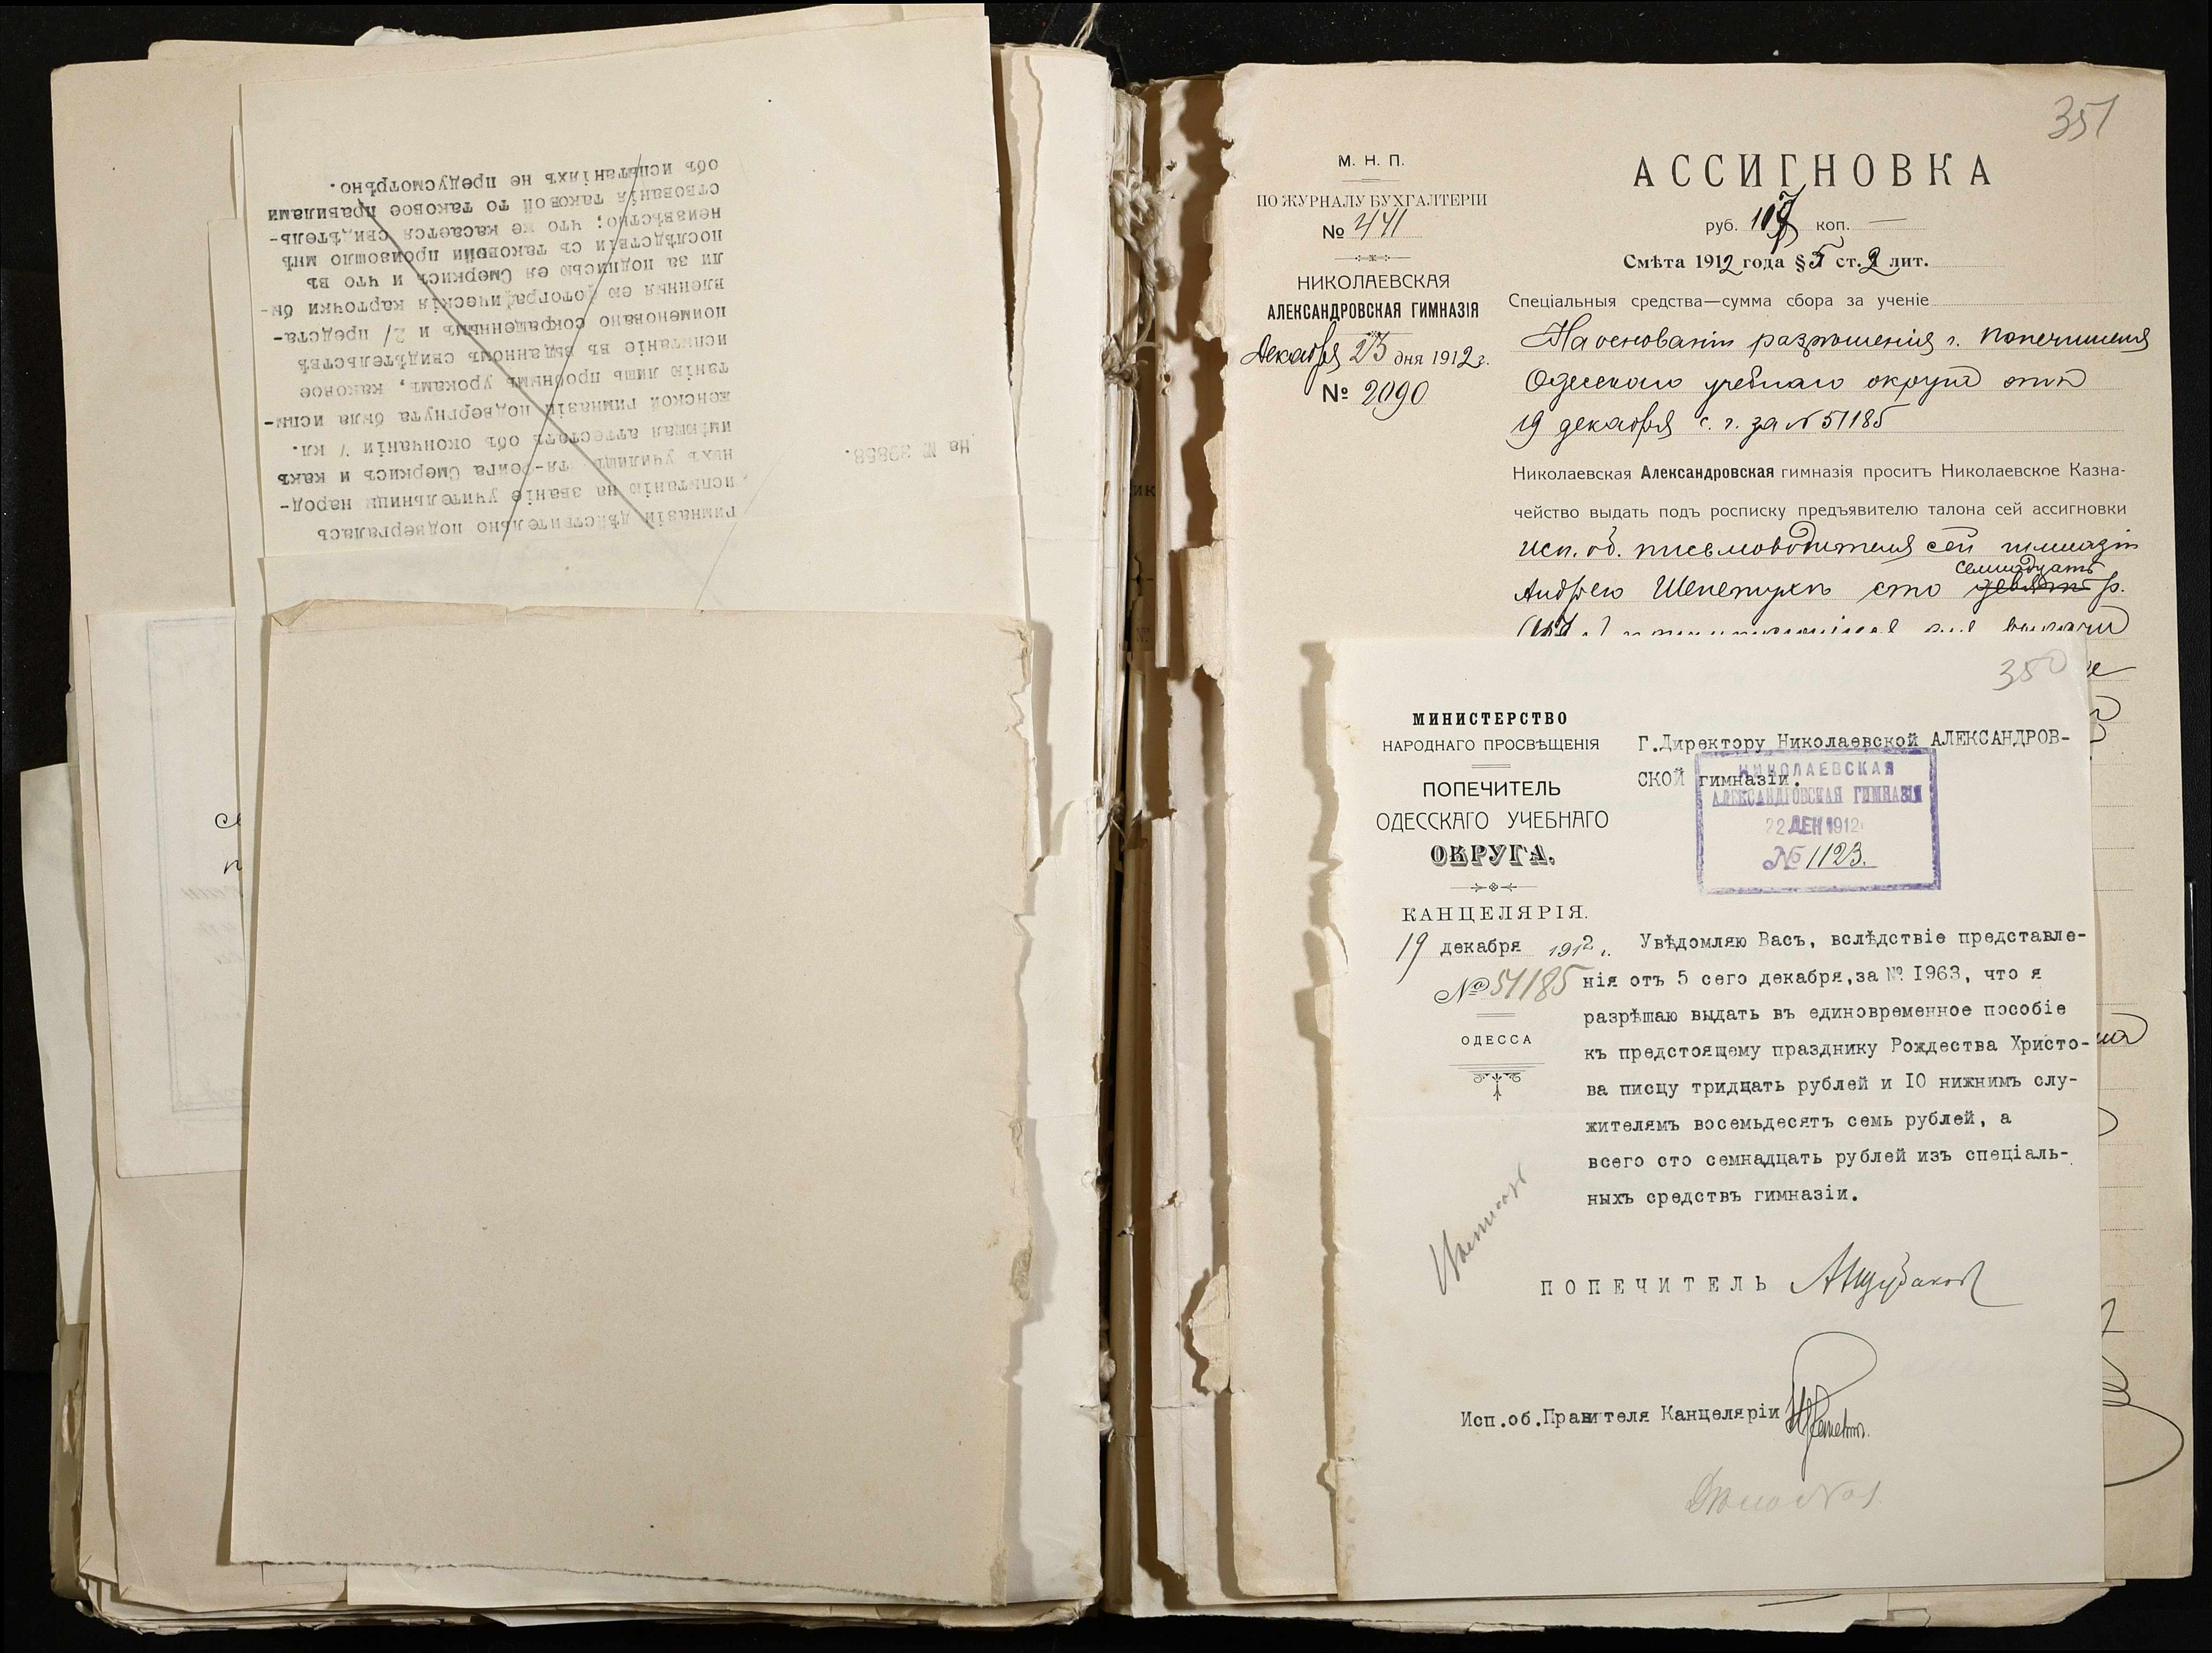 гимназіи дѣйствительно подвергалась
испытанію на званіе учительницы народ-
ныхъ училищъ
имѣющая аттестатъ объ окончаніи 7 кл.
женской гимназіи подвергнута была испы-
танію лишь пробнымъ урокамъ, каковое
испытаніе въ выданномъ свидѣтельствѣ
поименовано сокращеннымъ и 2/ предста-
вленныя ею фотографическія карточки бы-
ли за подписью ея Смеркисъ и что въ
послѣдствіи съ таковой произошло мнѣ
неизвѣстно; что же касается свидѣтель-
ствованія таковой то таковое правилами
объ испытаніяхъ не предусмотрѣно.
На № 39858.
351
М. Н. П.
ПО ЖУРНАЛУ БУХГАЛТЕРІИ
№ 441
НИКОЛАЕВСКАЯ
АЛЕКСАНДРОВСКАЯ ГИМНАЗІЯ
Декабря 23 дня 1912 г.
№ 2090
АССИГНОВКА
руб. 117 коп. —
Смѣта 1912 года § 5 ст. 2 лит.
Спеціальныя средства—сумма сбора за ученіе
На основаніи разрѣшенія г. Попечителя
Одесскаго учебнаго округа отъ
19 декабря с. г. за № 51185
Николаевская Александровская гимназія проситъ Николаевское Казна-
чейство выдать подъ росписку предъявителю талона сей ассигновки
исп. об. письмоводителя сей гимназіи
семнадцать
Андрею Шепетухѣ сто девять р.
350
МИНИСТЕРСТВО
НАРОДНАГО ПРОСВѢЩЕНІЯ
ПОПЕЧИТЕЛЬ
ОДЕССКАГО УЧЕБНАГО
ОКРУГА.
КАНЦЕЛЯРІЯ.
19 декабря 1912 г.
№ 51185
ОДЕССА
Г.Директору Николаевской АЛЕКСАНДРОВ-
СКОЙ гимназіи.
НИКОЛАЕВСКАЯ
АЛЕКСАНДРОВСКАЯ ГИМНАЗІЯ
22 ДЕК 1912
№ 1123.
Увѣдомляю Васъ, вслѣдствіе представле-
нія отъ 5 сего декабря,за № I963, что я
разрѣшаю выдать въ единовременное пособіе
къ предстоящему празднику Рождества Христо-
ва писцу тридцать рублей и IO нижнимъ слу-
жителямъ восемьдесятъ семь рублей, а
всего сто семнадцать рублей изъ спеціаль-
ныхъ средствъ гимназіи.
ПОПЕЧИТЕЛЬ
Исп.об.Правителя Канцеляріи